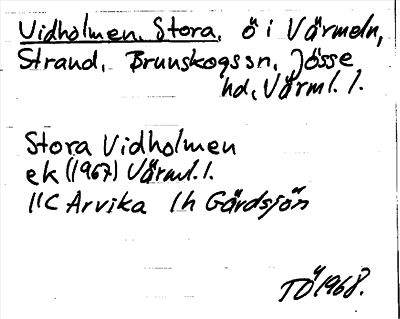 Vidholmen, Stora, ö i Värmeln,
Strand, Brunskogssn, Jösse
hd, Värml. l.
Stora Vidholmen
ek (1967) Värml. l.
11C Arvika 1h Gårdsjön
TÖ 1968.